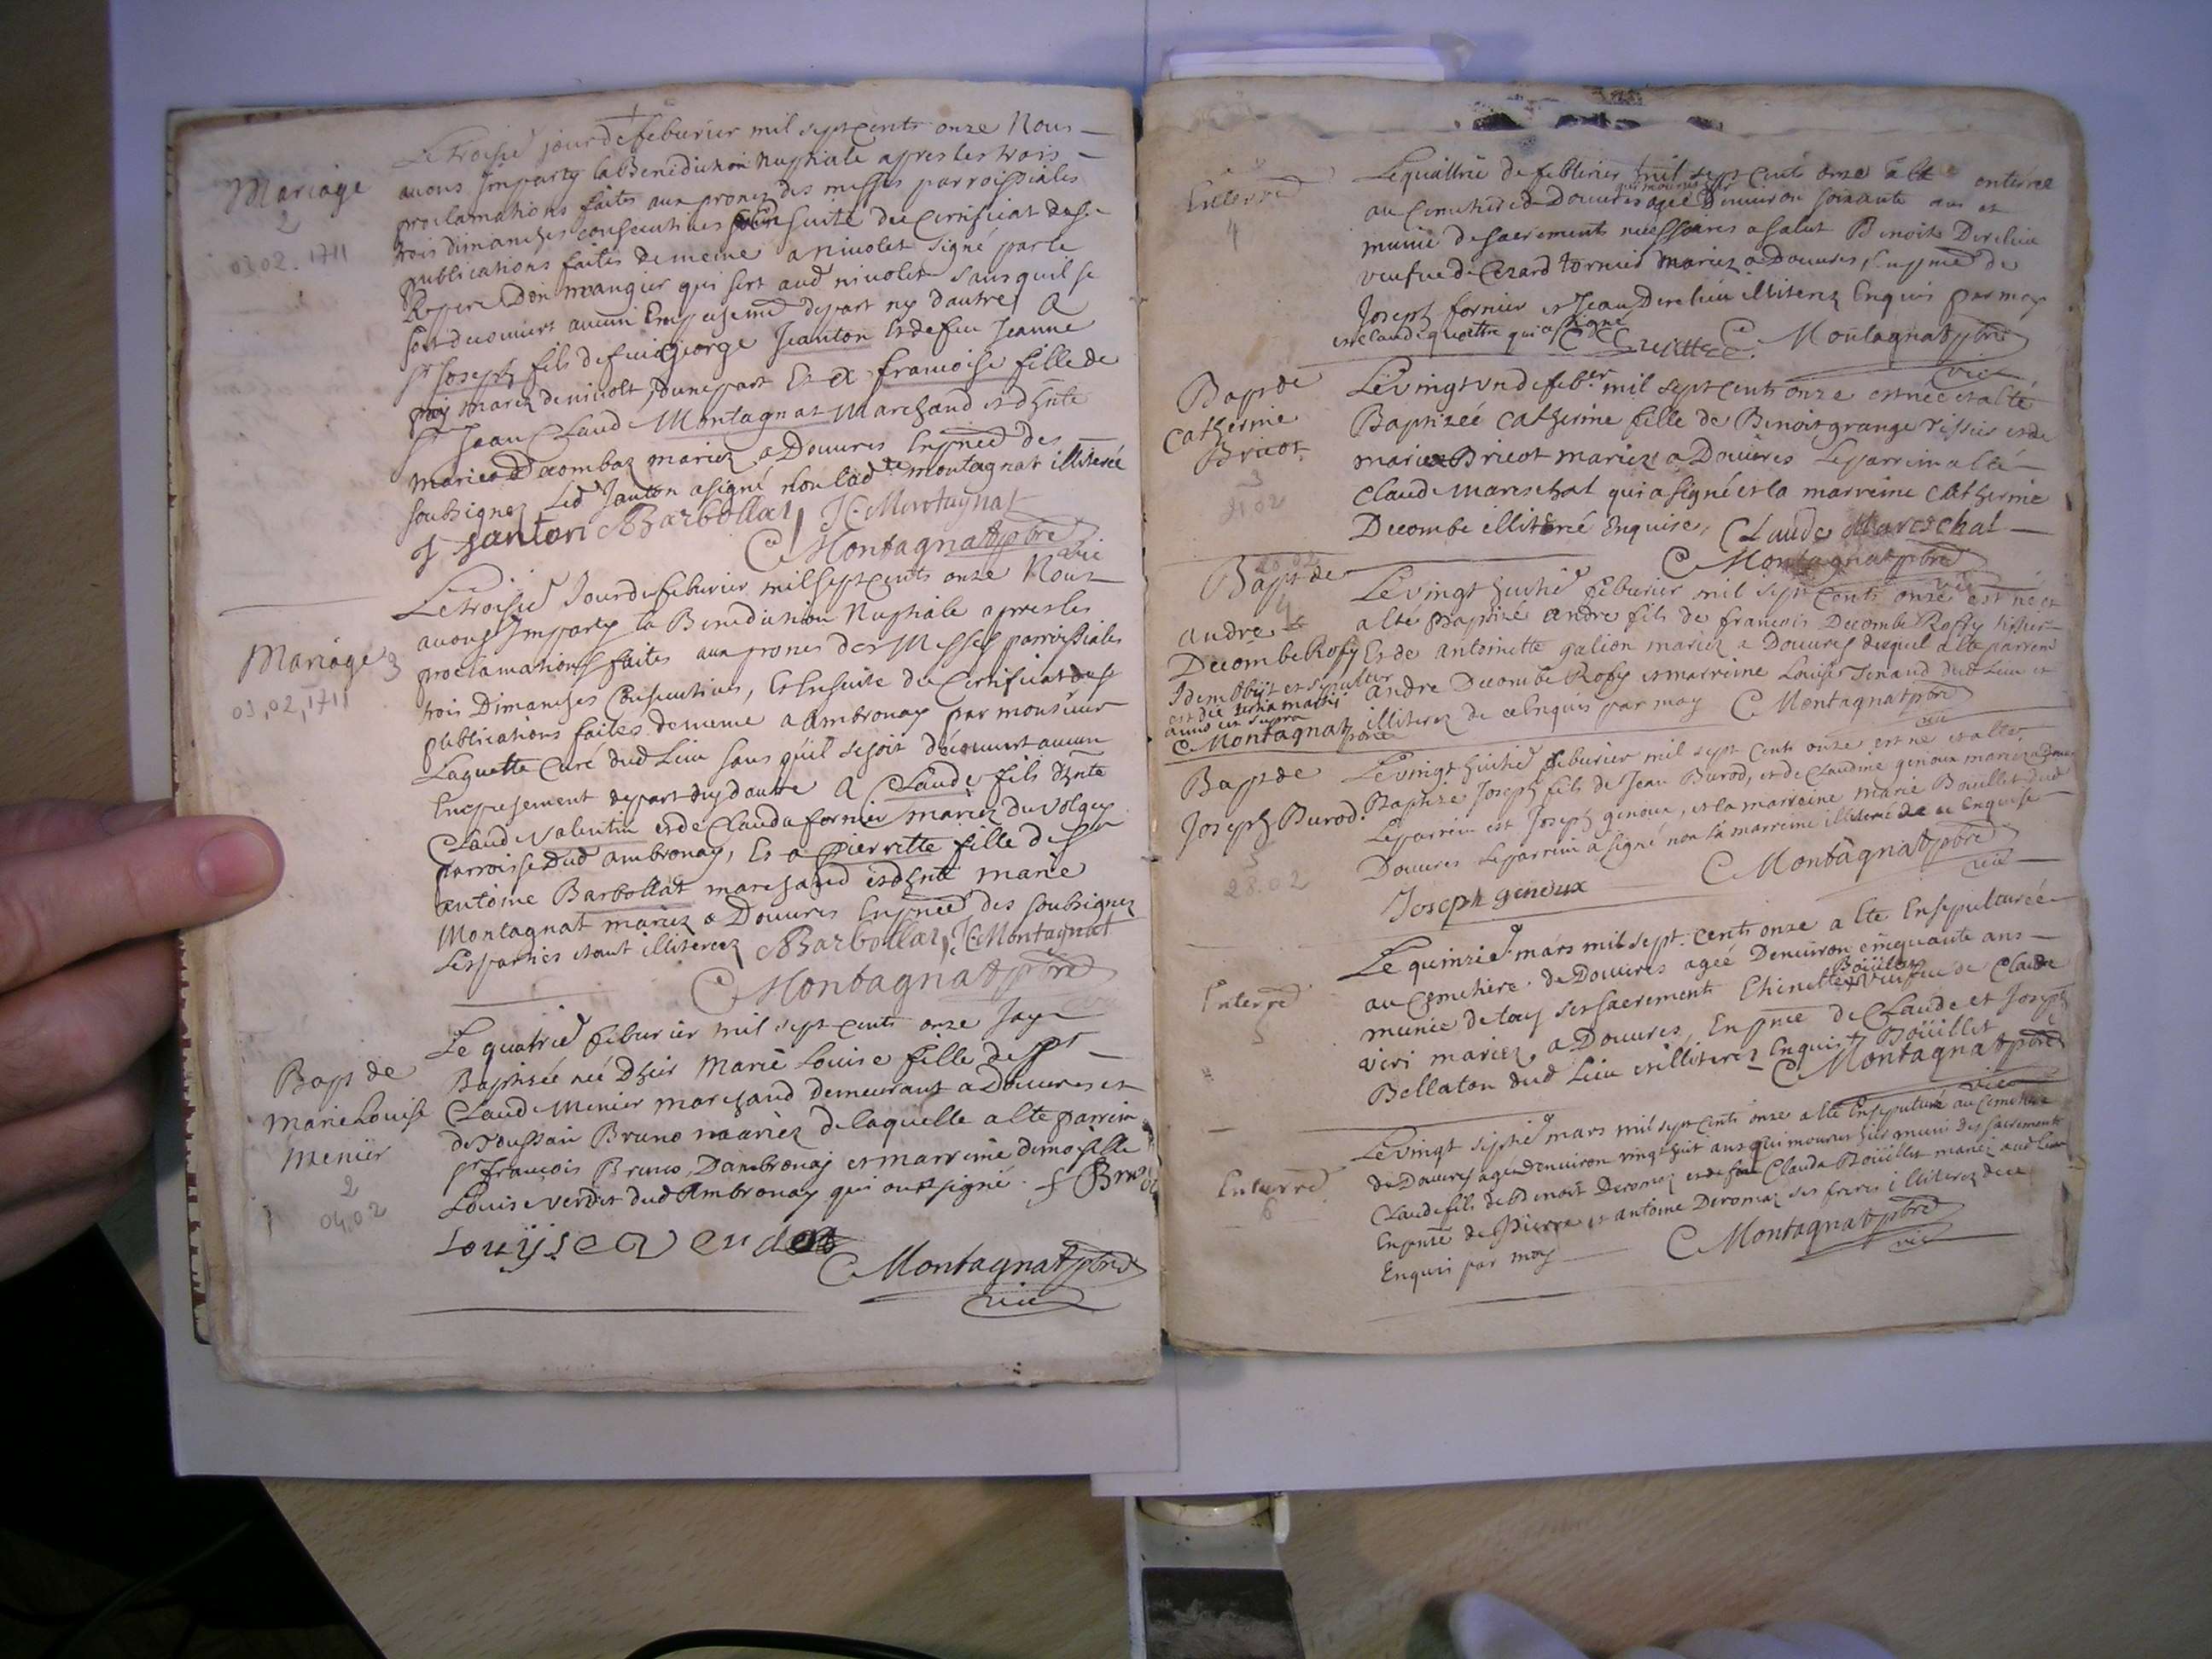 Mariage
2
03.02.1711
Le troisie jour de feburier mil sept cents onze Nous
avons Imparty la Benediction Nuptiale apres les trois
proclamations faites aux prones des messes parroissiales
trois dimanches consecutives ensuite du Certificat des
publications faites de meme a nivolet signé par le
Rd pere Don mangier qui sert aud nivolet sans quil se
soit decouvert aucun Empechemt depart ny dautre A
sr Joseph fils de feu George Janton et de feu Jeanne
mariez de nivolt dune part Et a francoise fille de
sr Jean Claude Montagnat Marchand et dhnte
Marie Decombaz mariez a Douvres En pnce des
soubsignez Led Janton a signé non lade montagnat illiterée
J Janton Barbollat JC Montagnat
C Montagnat pbre
vic
Mariage 3
03,02,1711
Le troisie Jour de feburier mil sept cents onze Nous
avons Imparty la Benediction Nuptiale apres les
proclamations faites aux prones des Messes parroissiales
trois Dimanches Consecutives, Et Ensuite du Certificat des
publications faites de meme a Ambronay par monsieur
Laguette Curé dud Lieu sans quil se soit decouvert aucun
Empechement depart ny dautre A Claude fils dhnte
Claude Valentin et de Clauda fornier mariez du volgey
parroisse dud ambronay, Et a pierrette fille de sr
antoine Barbollat marchand et dhnte marie
Montagnat mariez a Douvres En pnce des soubsignez
Les parties etant illiterées Barbollat, JC Montagnat
C Montagnat pbre
Bapt de
Marie Louise
menier
2
04.02
Le quatrie feburier mil sept cents onze Jay
Baptisée née Dhier Marie Louise fille de sr
Claude Menier marchand demeurant a Douvres et
de Toussain Bruno mariez de laquelle a été parrein
sr francois Bruno, Dambronay et marreine demoiselle
Louise verdet dud Ambronay qui ont signé. f Bruno
Louyse verdet
C Montagnat pbre
vic
Enterré
4
Le quattrie de feburier mil sept cents onze a été enterrée
au Cemetiere de Douvres agée Denuiron soixante ans et
munie de sacrements necessaires a salut Benoite Derelieu
veufve de Cezard fornier mariez a Douvres, En pnce de
Joseph fornier et Jean Derelieu illiterez Enquis par moy
et claude quettre qui a signé
C Montagnat pbre
vic
Bapt de
Catherine
Bricot
3
21.02
Le vingt vn de feber mil sept cents onze est née et a été
Baptizée Catherine fille de Benoit grange tissier et de
marie Bricot mariez a Douvres Le parrein a été
Claude Mareschal qui a signé et la marreine Catherine
Decombe illiterée Enquise, Claude Mareschal
C Montagnat pbre
vic
Bapt de
4
andre
Decombe Rosy
Idem Obiit et sepultus
est die tertia martii
anno ut supra
C Montagnat pbre
Le vingt huitie feburier mil sept cents onze est né et
a été Baptisé andre fils de francois Decombe Rosy tissier
Et de antoinette galion mariez a Douvres duquel a été parrein
andre Decombe Rosy et marreine Louise Tenand dud Lieu et
illiterez de ce Enquis par moy C Montagnat pbre
vic
Bapt de
Joseph Burod.
5
28.02
Le vingt huitie feburier mil sept cents onze est né et a été
Baptize Joseph fils de Jean Burod, et de Claudine genoux mariez a Douvres
Le parrein est Joseph genoux, et la marreine marie Bouillet dud
Douvres Le parrein a signé non la marreine illiterée de ce Enquise
Joseph genoux C Montagnat pbre
vic
Enterré
5
Le quinzie mars mil sept cents onze a été Ensepulturée
au Cemetiere de Douvres agée Denuiron cinquante ans
munie de tous ses sacrements Thienette Boüillet veufve de Claude
viri mariez a Douvres, En pnce de Claude et Joseph Boüillet
Bellaton dud Lieu et illiterez Enquis C Montagnat pbre
vic
Enterré
6
Le vingt septie mars mil sept cents onze a été Ensepulturé au Cemetiere
de Douvres agé denuiron vingt huit ans qui mourut hier muni des sacrements
Claude fils de Benoit Deromaz et de feu Clauda Boüillet mariez aud Lieu
En pnce de Pierre et antoine Deromaz ses freres illiterez de ce
Enquis par moy C Montagnat pbre
vic